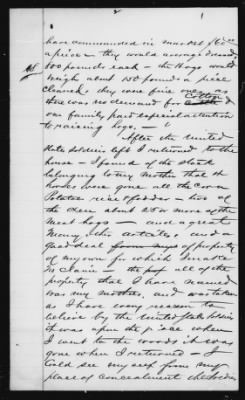 1
have commanded in market $10.00
apiece - they would average dressed
100 pounds each - the Hogs would
weigh about 150 pounds a piece
cleaned, they were fine ones as
Cotton
there was no demand for
our family paid especial attention
to raising hogs. -
After the United
States Soldiers left I returned to the
house - I found of the stock
belonging to my Mother that the
horses were gone all the corn
Potatoes rice & fodder - two of
the Oxen about 25 or more of the
meat hogs - and a great
many other articles and a
good deal from me of property
of my own for which I make
no claim - the all of the
property that I have named
was my mothers, and was taken
as I have every reason to
believe by the United States Soldiers
it was upon the place when
I went to the woods it was
gone when I returned - I
Could see my self from my
place of concealment the Soldiers